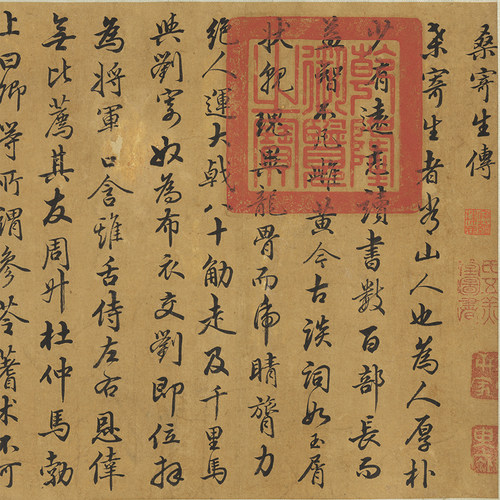 桑寄生傳
桑寄生者常山人也為人厚朴
少有遠志讀書數百部長而
益智不凡雌黃今古談詞如玉屑
狀貌瑰異龍骨而虎睛膂力
絕人運大戟八十觔走及千里馬
與劉寄奴為布衣交劉即位拜
為將軍口含雞舌侍左右恩倖
無比薦其友周升杜仲馬勃
上曰卿等所謂參苓蓍朮不可
乾隆御覽之寶